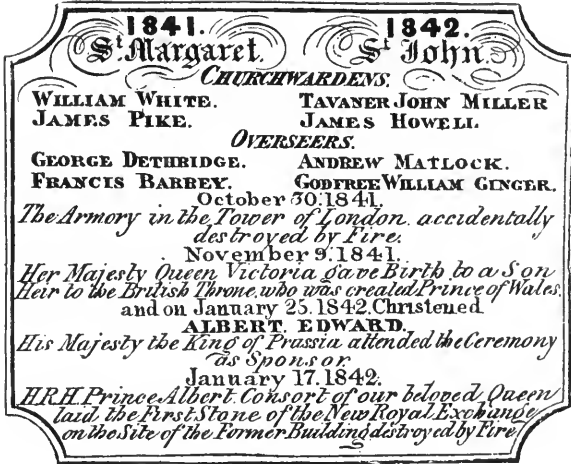 1841. 1842.
St. Margaret. St. John.
CHURCHWARDENS.
WILLIAM WHITE. TAVANER JOHN MILLER
JAMES PIKE. JAMES HOWELL
OVERSEERS.
GEORGE DETHRIDGE. ANDREW MATLOCK.
FRANCIS BARBEY. GODFREE WILLIAM GINGER.
October 30.1841.
The Armory in the Tower of London accidentally
destroyed by Fire.
November 9.1841.
Her Majesty Queen Victoria gave Birth to a Son
Heir to the British Throne, who was created Prince of Wales,
and on January 25.1842. Christened
ALBERT EDWARD.
His Majesty the King of Prussia attended the Ceremony
as Sponsor.
January 17.1842.
H.R.H. Prince Albert. Consort of our beloved Queen
laid the First Stone of the New Royal Exchange
on the Site of the Former Building destroyed by Fire